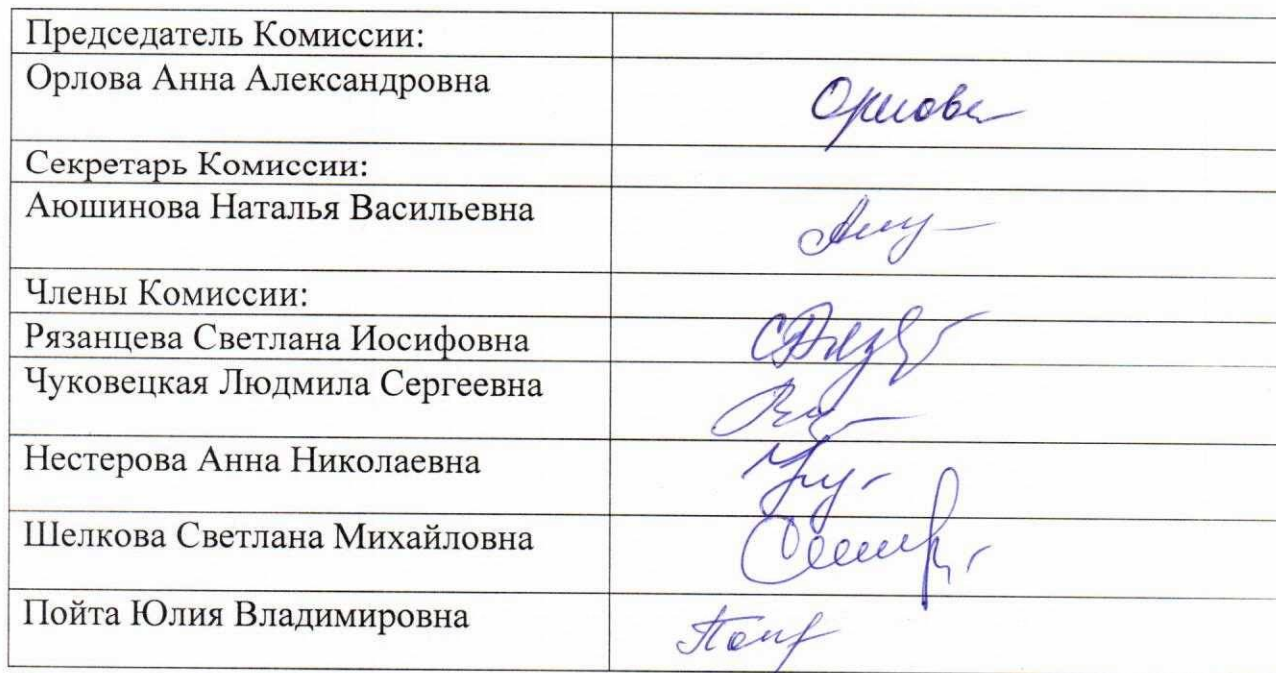 Председатель Комиссии:
Орлова Анна Александровна
Орлова
Секретарь Комиссии:
Аюшинова Наталья Васильевна
Члены Комиссии:
Рязанцева Светлана Иосифовна
Чуковецкая Людмила Сергеевна
Нестерова Анна Николаевна
Шелкова Светлана Михайловна
Пойта Юлия Владимировна